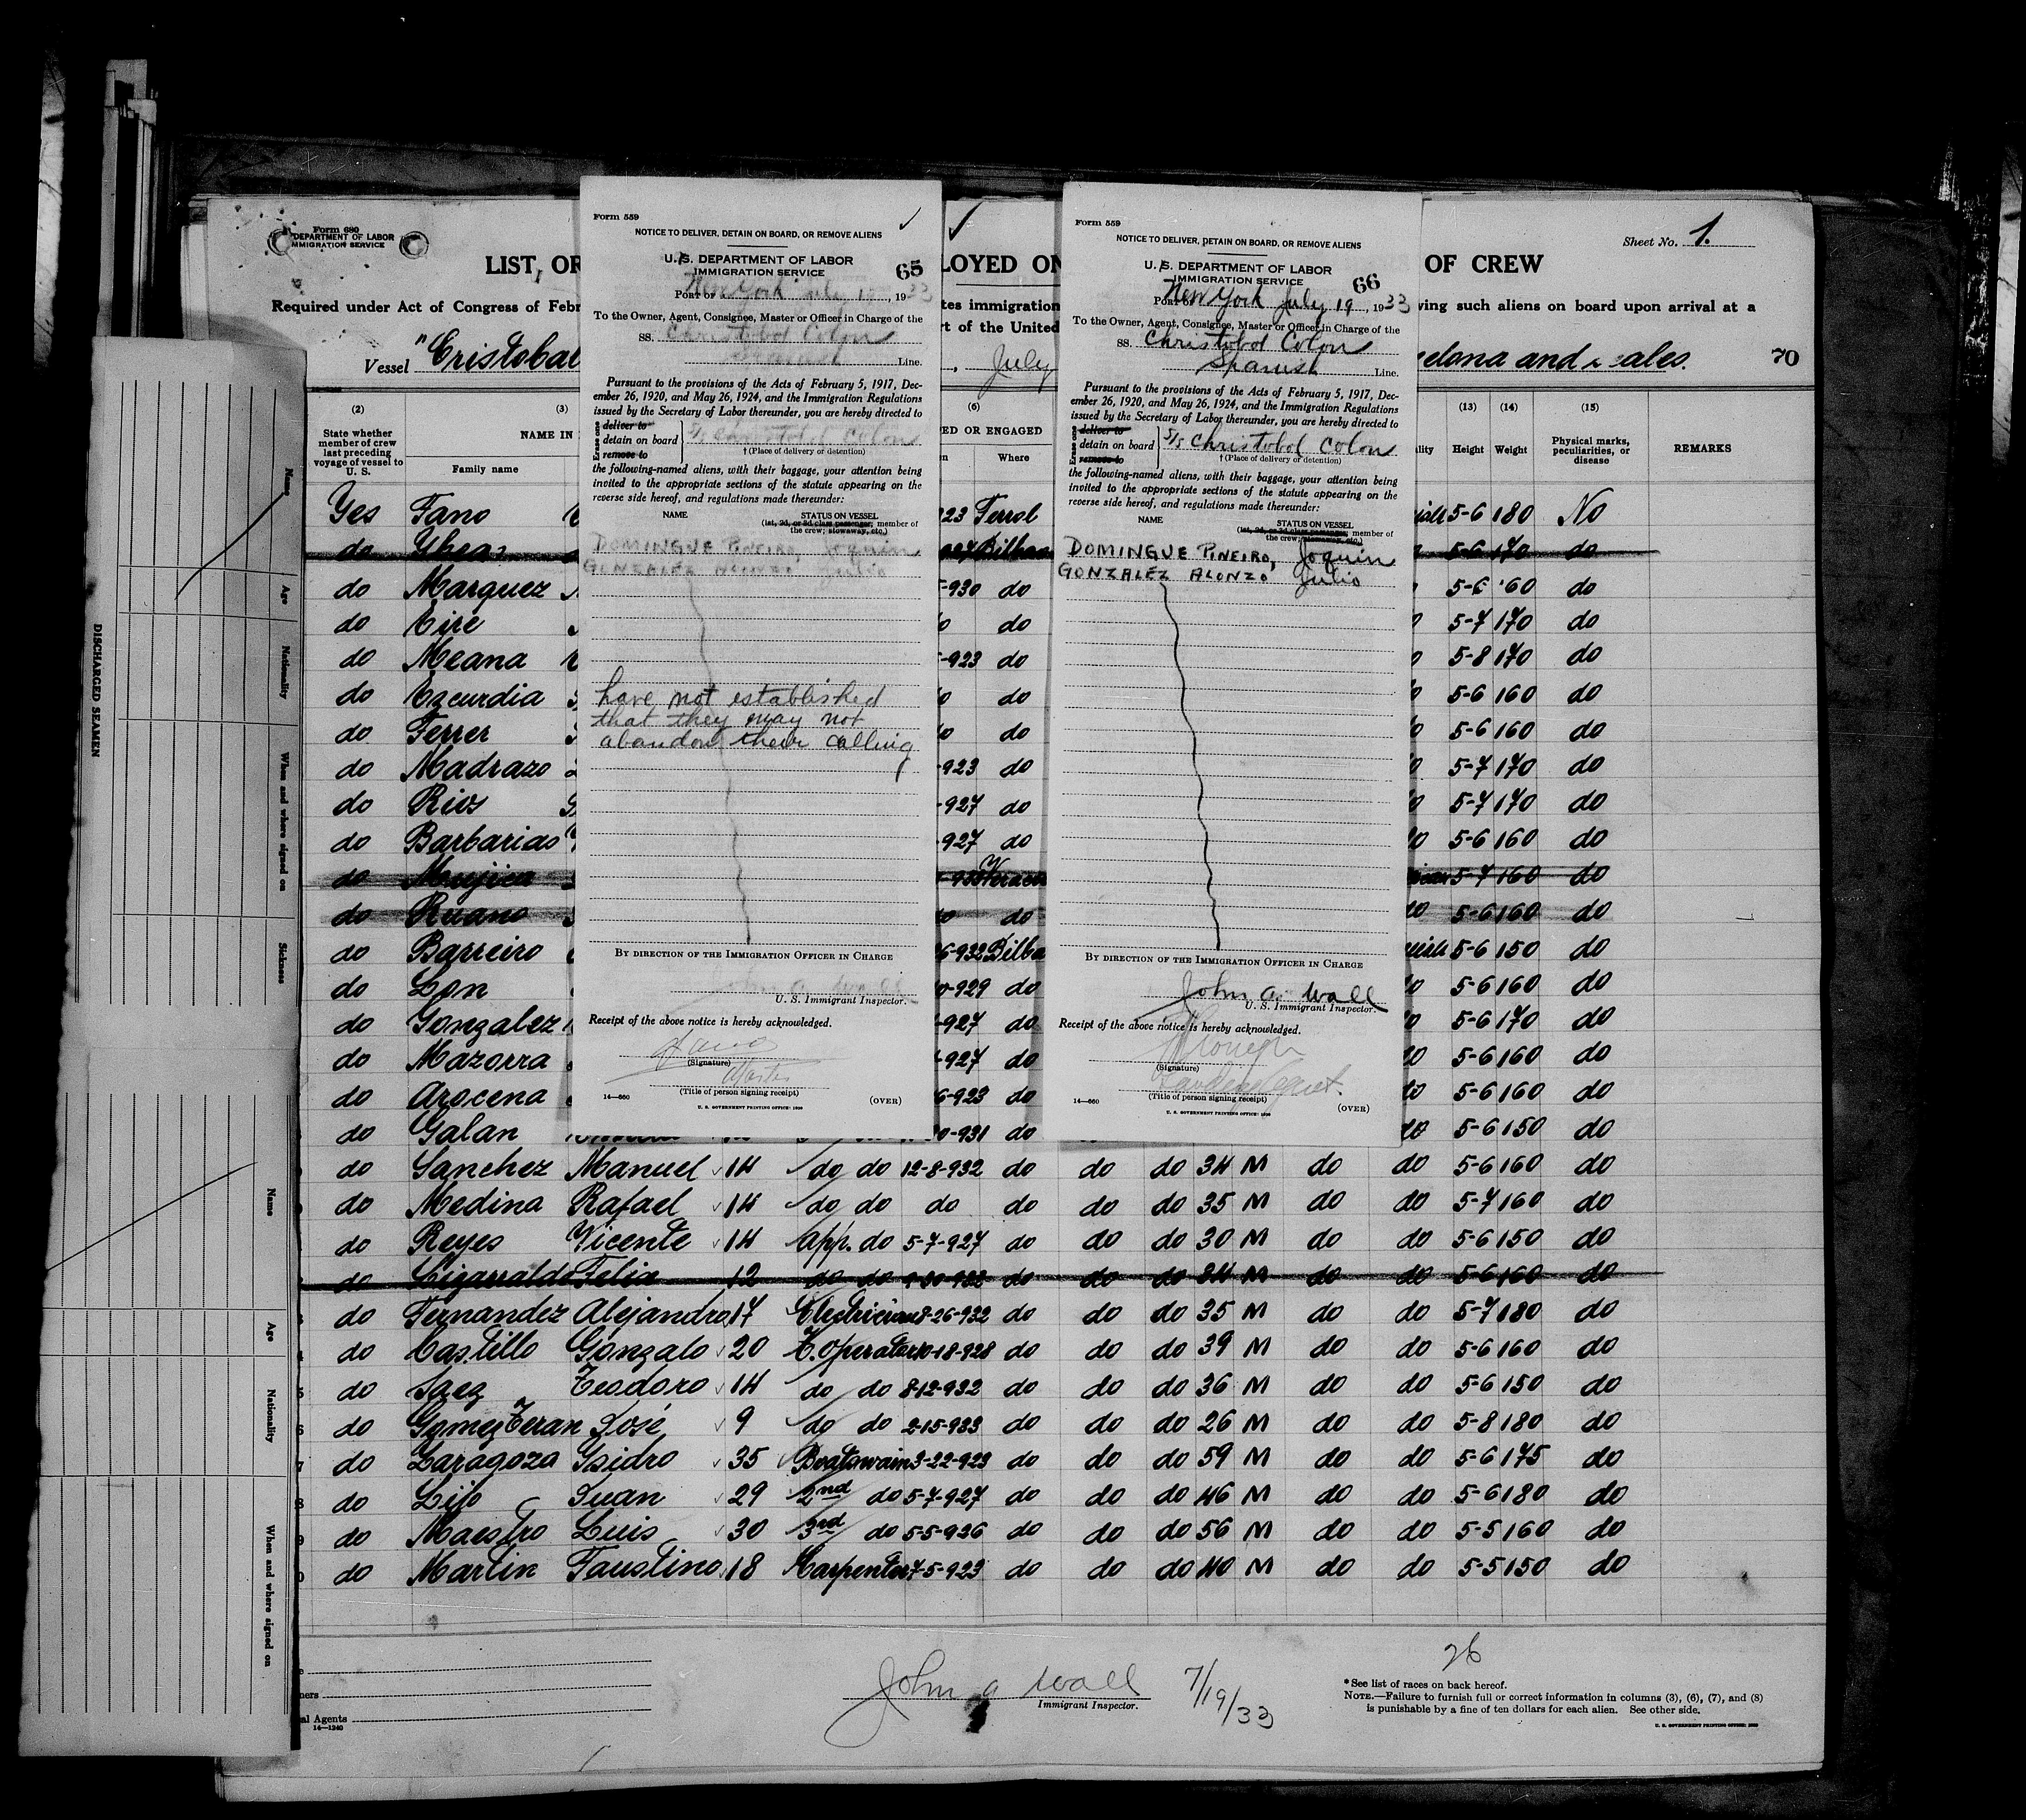 Form 680
DEPARTMENT OF LABOR
IMMIGRATION SERVICE
LIST, OR
LOYED ON
OF CREW
Sheet No. 1.
Required under Act of Congress of Febr
tes immigration
ving such aliens on board upon arrival at a
rt of the United
Vessel "Cristobal
, July
elona and
ales.
70
(2)
State whether member of crew last preceding voyage of vessel to U. S.
(3)
NAME IN
Family name
(6)
ED OR ENGAGED
Where
(13)
Height
(14)
Weight
(15)
Physical marks, peculiarities, or disease
REMARKS
Yes Fano 923 Ferrol 5-6 180 No
do 927 Bilbao 5-6 170 do
do Marquez -930 do 5-6 160 do
do Eire do 5-7 170 do
do Meana -923 do 5-8 170 do
do Ezcurdia do 5-6 160 do
do Ferrer do 5-6 160 do
do Madrazo -923 do 5-7 170 do
do Rios -927 do 5-7 170 do
do Barbarias -927 do 5-6 160 do
do Mujica 5-7 160 do
do Ruano do 5-6 160 do
do Barreiro 6-932 Bilba 5-6 150 do
do Lon 0-929 do 5-6 160 do
do Gonzalez -927 do 5-6 170 do
do Mazorra -927 do 5-6 160 do
do Arocena 6-923 do 5-6 160 do
do Galan 0-931 do 5-6 150 do
do Sanchez Manuel 14 do do 12-8-932 do do do 34 M do do 5-6 160 do
do Medina Rafael 14 do do do do do do 35 M do do 5-7 160 do
do Reyes Vicente 14 App. do 5-7-927 do do do 30 M do do 5-6 150 do
do Felix 12 do do do do do 34 M do do 5-6 160 do
do Fernandez Alejandro 17 Electrician 8-26-932 do do do 35 M do do 5-7 180 do
do Castillo Gonzalo 20 T. operator 10-18-928 do do do 39 M do do 5-6 160 do
do Saez Teodoro 14 do do 8-12-932 do do do 36 M do do 5-6 150 do
do Gomez Teran José 9 do do 2-15-933 do do do 26 M do do 5-8 180 do
do Zaragoza Ysidro 35 Boatswain 3-22-923 do do do 59 M do do 5-6 175 do
do Lijo Juan 29 2nd do 5-7-927 do do do 46 M do do 5-6 180 do
do Maestro Luis 30 3rd do 5-5-926 do do do 56 M do do 5-5 160 do
do Martin Faustino 18 Carpenter 7-5-923 do do do 40 M do do 5-5 150 do
ners
al Agents
14—1240
John a Wall
Immigrant Inspector.
7/19/33
26
* See list of races on back hereof.
NOTE.—Failure to furnish full or correct information in columns (3), (6), (7), and (8)
is punishable by a fine of ten dollars for each alien. See other side.
U. S. GOVERNMENT PRINTING OFFICE
Form 559
NOTICE TO DELIVER, DETAIN ON BOARD, OR REMOVE ALIENS
U. S. DEPARTMENT OF LABOR
IMMIGRATION SERVICE
65
PORT OF New York July 1933
To the Owner, Agent, Consignee, Master or Officer in Charge of the
SS. Christobol Colon
Spanish Line.
Pursuant to the provisions of the Acts of February 5, 1917, Dec-
ember 26, 1920, and May 26, 1924, and the Immigration Regulations
issued by the Secretary of Labor thereunder, you are hereby directed to
Erase one
deliver to
detain on board
remove to
S/S Christobol Colon
† (Place of delivery or detention)
the following-named aliens, with their baggage, your attention being
invited to the appropriate sections of the statute appearing on the
reverse side hereof, and regulations made thereunder:
NAME
STATUS ON VESSEL
(1st, 2d, or 3d class passenger; member of
the crew; stowaway, etc.)
DOMINGUE PINEIRO, Joquin
GONZALEZ ALONZO Julio
have not established
that they may not
abandon their calling
BY DIRECTION OF THE IMMIGRATION OFFICER IN CHARGE
John a. Wall
U. S. Immigrant Inspector.
Receipt of the above notice is hereby acknowledged.
(Signature)
Master
(Title of person signing receipt)
14—660
U. S. GOVERNMENT PRINTING OFFICE: 1930
(OVER)
Form 559
NOTICE TO DELIVER, DETAIN ON BOARD, OR REMOVE ALIENS
U. S. DEPARTMENT OF LABOR
IMMIGRATION SERVICE
66
New York July 19, 1933
To the Owner, Agent, Consignee, Master or Officer in Charge of the
SS. Christobol Colon
Spanish Line.
Pursuant to the provisions of the Acts of February 5, 1917, Dec-
ember 26, 1920, and May 26, 1924, and the Immigration Regulations
issued by the Secretary of Labor thereunder, you are hereby directed to
Erase one
deliver to
detain on board
remove to
S/S Christobol Colon
† (Place of delivery or detention)
the following-named aliens, with their baggage, your attention being
invited to the appropriate sections of the statute appearing on the
reverse side hereof, and regulations made thereunder:
NAME
STATUS ON VESSEL
(1st, 2d, or 3d class passenger; member of
the crew; stowaway, etc.)
DOMINGUE PINEIRO, Joquin
GONZALEZ ALONZO Julio
BY DIRECTION OF THE IMMIGRATION OFFICER IN CHARGE
John a. Wall
U. S. Immigrant Inspector.
Receipt of the above notice is hereby acknowledged.
(Signature)
(Title of person signing receipt)
14—660
U. S. GOVERNMENT PRINTING OFFICE: 1930
(OVER)
DISCHARGED SEAMEN
Name
Age
Nationality
When and where signed on
Sickness
Name
Age
Nationality
When and where signed on